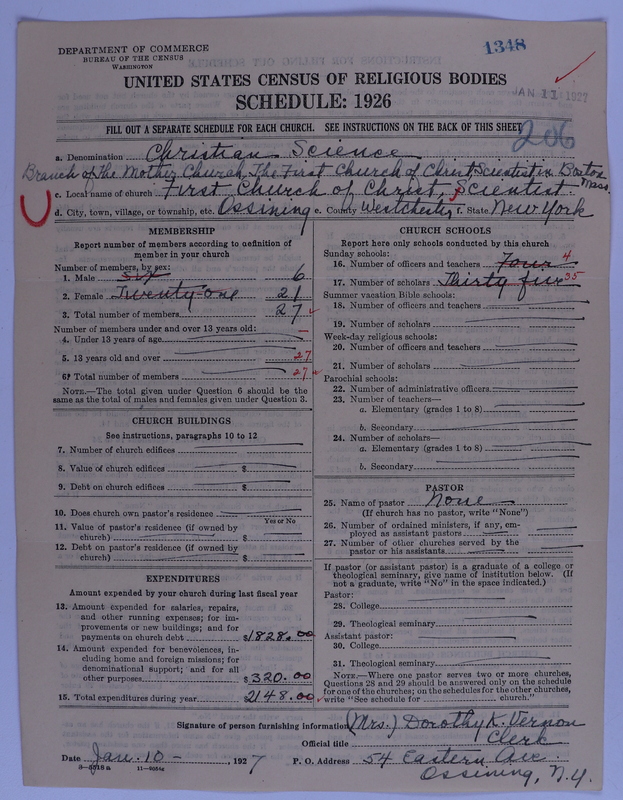 DEPARTMENT OF COMMERCE
BUREAU OF THE CENSUS
WASHINGTON
1348
JAN 11 1927
UNITED STATES CENSUS OF RELIGIOUS BODIES
SCHEDULE: 1926
FILL OUT A SEPARATE SCHEDULE FOR EACH CHURCH. SEE INSTRUCTIONS ON THE BACK OF THIS SHEET
206
a. Denomination Christian Science
Branch of The Mother Church, The First Church of Christ, Scientist in Boston Mass.
c. Local name of church First Church of Christ, Scientist
d. City, town, village, or township, etc. Ossining e. County Westchester f. State New York
MEMBERSHIP
Report number of members according to definition of
member in your church
Number of members, by sex:
1. Male Six 6
2. Female Twenty-one 21
3. Total number of members 27
Number of members under and over 13 years old:
4. Under 13 years of age
5. 13 years old and over 27
6. Total number of members 27
NOTE.—The total given under Question 6 should be
same as the total of males and females given under Question 3.
CHURCH BUILDINGS
See instructions, paragraphs 10 to 12
7. Number of church edifices
8. Value of church edifices $
9. Debt on church edifices $
10. Does church own pastor's residence
Yes or No
11. Value of pastor's residence (if owned by
church) $
12. Debt on pastor's residence (if owned by
church) $
EXPENDITURES
Amount expended by your church during last fiscal year
13. Amount expended for salaries, repairs,
and other running expenses; for im-
provements or new buildings; and for
payments on church debt $1828.00
14. Amount expended for benevolences, in-
cluding home and foreign missions; for
denominational support; and for all
other purposes $320.00
15. Total expenditures during year $2148.00
CHURCH SCHOOLS
Report here only schools conducted by this church
Sunday schools:
16. Number of officers and teachers Four 4
17. Number of scholars Thirty five 35
Summer vacation Bible schools:
18. Number of officers and teachers
19. Number of scholars
Week-day religious schools:
20. Number of officers and teachers
21. Number of scholars
Parochial schools:
22. Number of administrative officers
23. Number of teachers—
a. Elementary (grades 1 to 8)
b. Secondary
24. Number of scholars—
a. Elementary (grades 1 to 8)
b. Secondary
PASTOR
25. Name of pastor None
(If church has no pastor, write "None")
26. Number of ordained ministers, if any, em-
ployed as assistant pastors
27. Number of other churches served by the
pastor or his assistants
If pastor (or assistant pastor) is a graduate of a college or
theological seminary, give name of institution below. (If
not a graduate, write "No" in the space indicated.)
Pastor:
28. College
29. Theological seminary
Assistant pastor:
30. College
31. Theological seminary
NOTE.—Where one pastor serves two or more churches,
Questions 28 and 29 should be answered only on the schedule
for one of the churches; on the schedules for the other churches,
write "See schedule for church."
Signature of person furnishing information (Mrs.) Dorothy K. Vernon
Official title Clerk
Date Jan. 10 - , 1927 P. O. Address 54 Eastern Ave.
Ossining, N.Y.